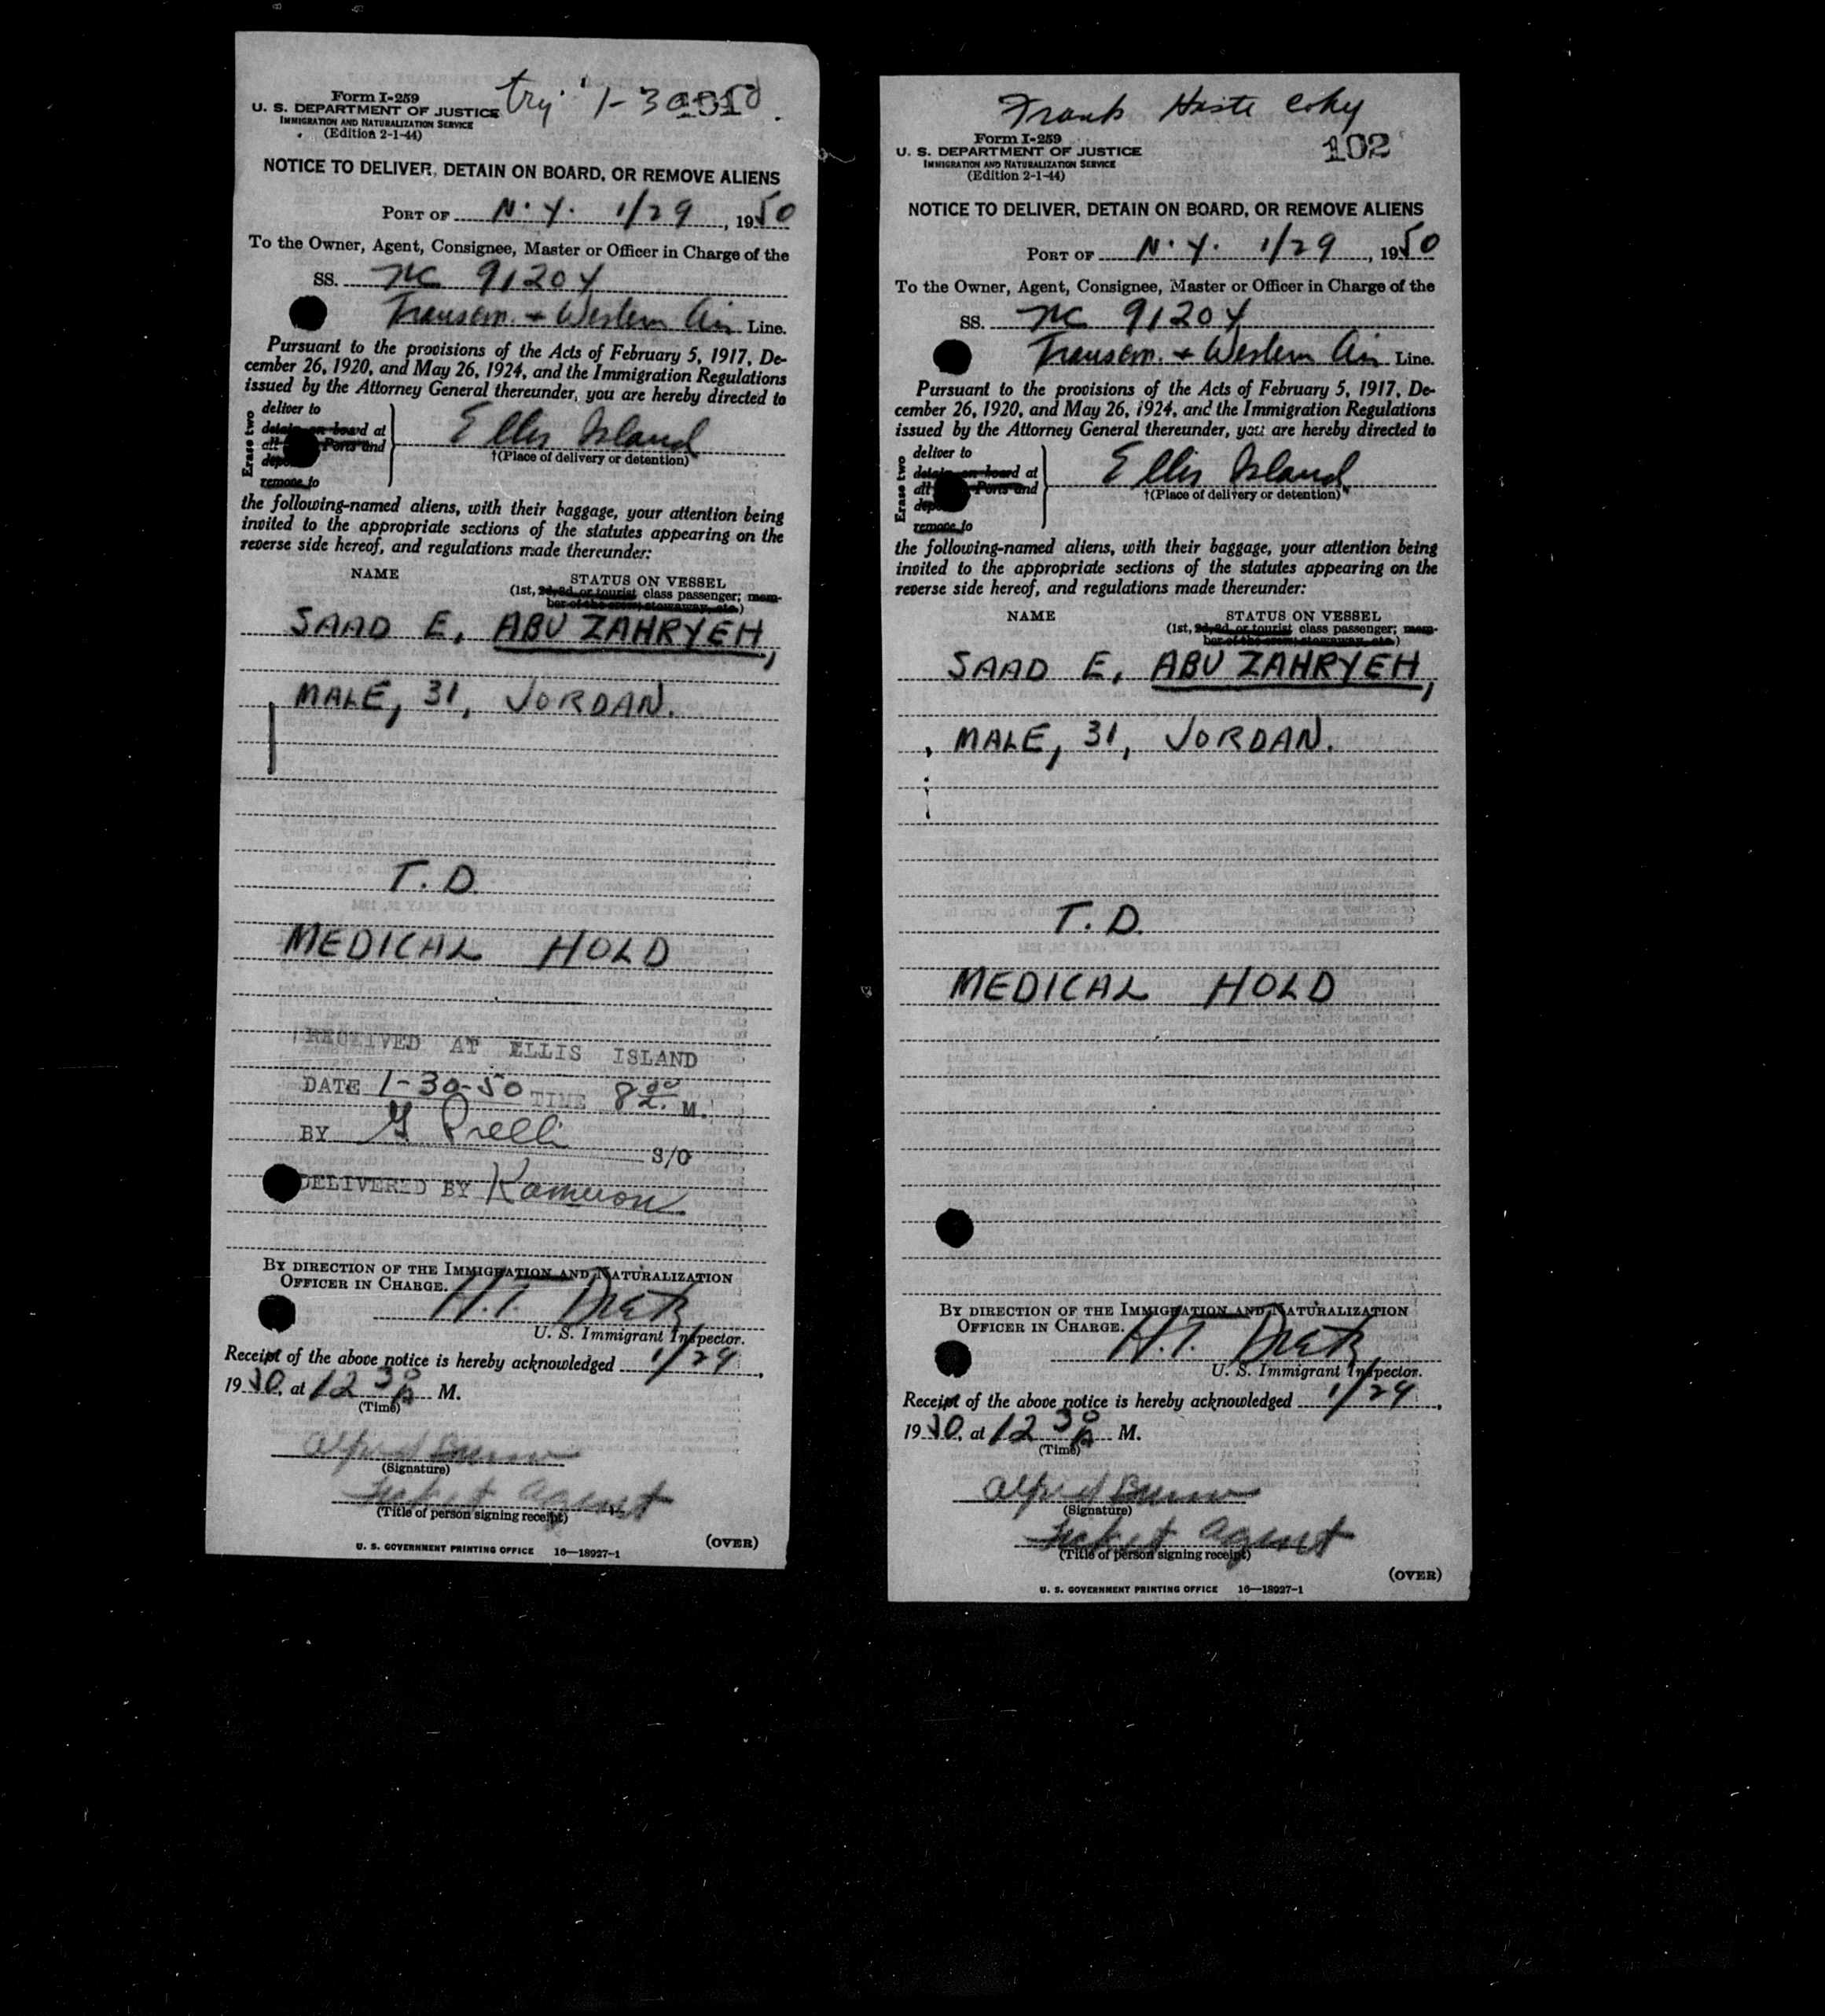 Form I-259
U. S. DEPARTMENT OF JUSTICE
IMMIGRATION AND NATURALIZATION SERVICE
(Edition 2-1-44)
1-30
NOTICE TO DELIVER, DETAIN ON BOARD, OR REMOVE ALIENS
PORT OF N.Y. 1/29, 1950
To the Owner, Agent, Consignee, Master or Officer in Charge of the
SS. NC 91204
& Western Air Line.
Pursuant to the provisions of the Acts of February 5, 1917, De-
cember 26, 1920, and May 26, 1924, and the Immigration Regulations
issued by the Attorney General thereunder, you are hereby directed to
Erase two
deliver to
detain on board at
all Ports and
remove to
Ellis Island
†(Place of delivery or detention)
the following-named aliens, with their baggage, your attention being
invited to the appropriate sections of the statutes appearing on the
reverse side hereof, and regulations made thereunder:
NAME STATUS ON VESSEL
(1st, 2d, 3d, or tourist class passenger; mem-
ber of the crew, stowaway, etc.)
SAAD E, ABU ZAHRYEH,
MALE, 31, JORDAN.
T.D.
MEDICAL HOLD
RECEIVED AT ELLIS ISLAND
DATE 1-30-50 TIME 8 M.
BY G Prelli S/O
DELIVERED BY Kameron
BY DIRECTION OF THE IMMIGRATION AND NATURALIZATION
OFFICER IN CHARGE.
H.T.
U. S. Immigrant Inspector.
Receipt of the above notice is hereby acknowledged 1/29,
1950, at 12 30 A M.
(Time)
Alfred
(Signature)
Ticket Agent
(Title of person signing receipt)
(OVER)
U. S. GOVERNMENT PRINTING OFFICE 16—18927-1
Frank
Form I-259
U. S. DEPARTMENT OF JUSTICE
IMMIGRATION AND NATURALIZATION SERVICE
(Edition 2-1-44)
102
NOTICE TO DELIVER, DETAIN ON BOARD, OR REMOVE ALIENS
PORT OF N.Y. 1/29, 1950
To the Owner, Agent, Consignee, Master or Officer in Charge of the
SS. NC 91204
& Western Air Line.
Pursuant to the provisions of the Acts of February 5, 1917, De-
cember 26, 1920, and May 26, 1924, and the Immigration Regulations
issued by the Attorney General thereunder, you are hereby directed to
Erase two
deliver to
detain on board at
all Ports and
remove to
Ellis Island
†(Place of delivery or detention)
the following-named aliens, with their baggage, your attention being
invited to the appropriate sections of the statutes appearing on the
reverse side hereof, and regulations made thereunder:
NAME STATUS ON VESSEL
(1st, 2d, 3d, or tourist class passenger; mem-
ber of the crew, stowaway, etc.)
SAAD E, ABU ZAHRYEH,
MALE, 31, JORDAN.
T.D.
MEDICAL HOLD
BY DIRECTION OF THE IMMIGRATION AND NATURALIZATION
OFFICER IN CHARGE.
H.T.
U. S. Immigrant Inspector.
Receipt of the above notice is hereby acknowledged 1/29,
1950, at 12 30 A M.
(Time)
Alfred
(Signature)
Ticket Agent
(Title of person signing receipt)
(OVER)
U. S. GOVERNMENT PRINTING OFFICE 16—18927-1